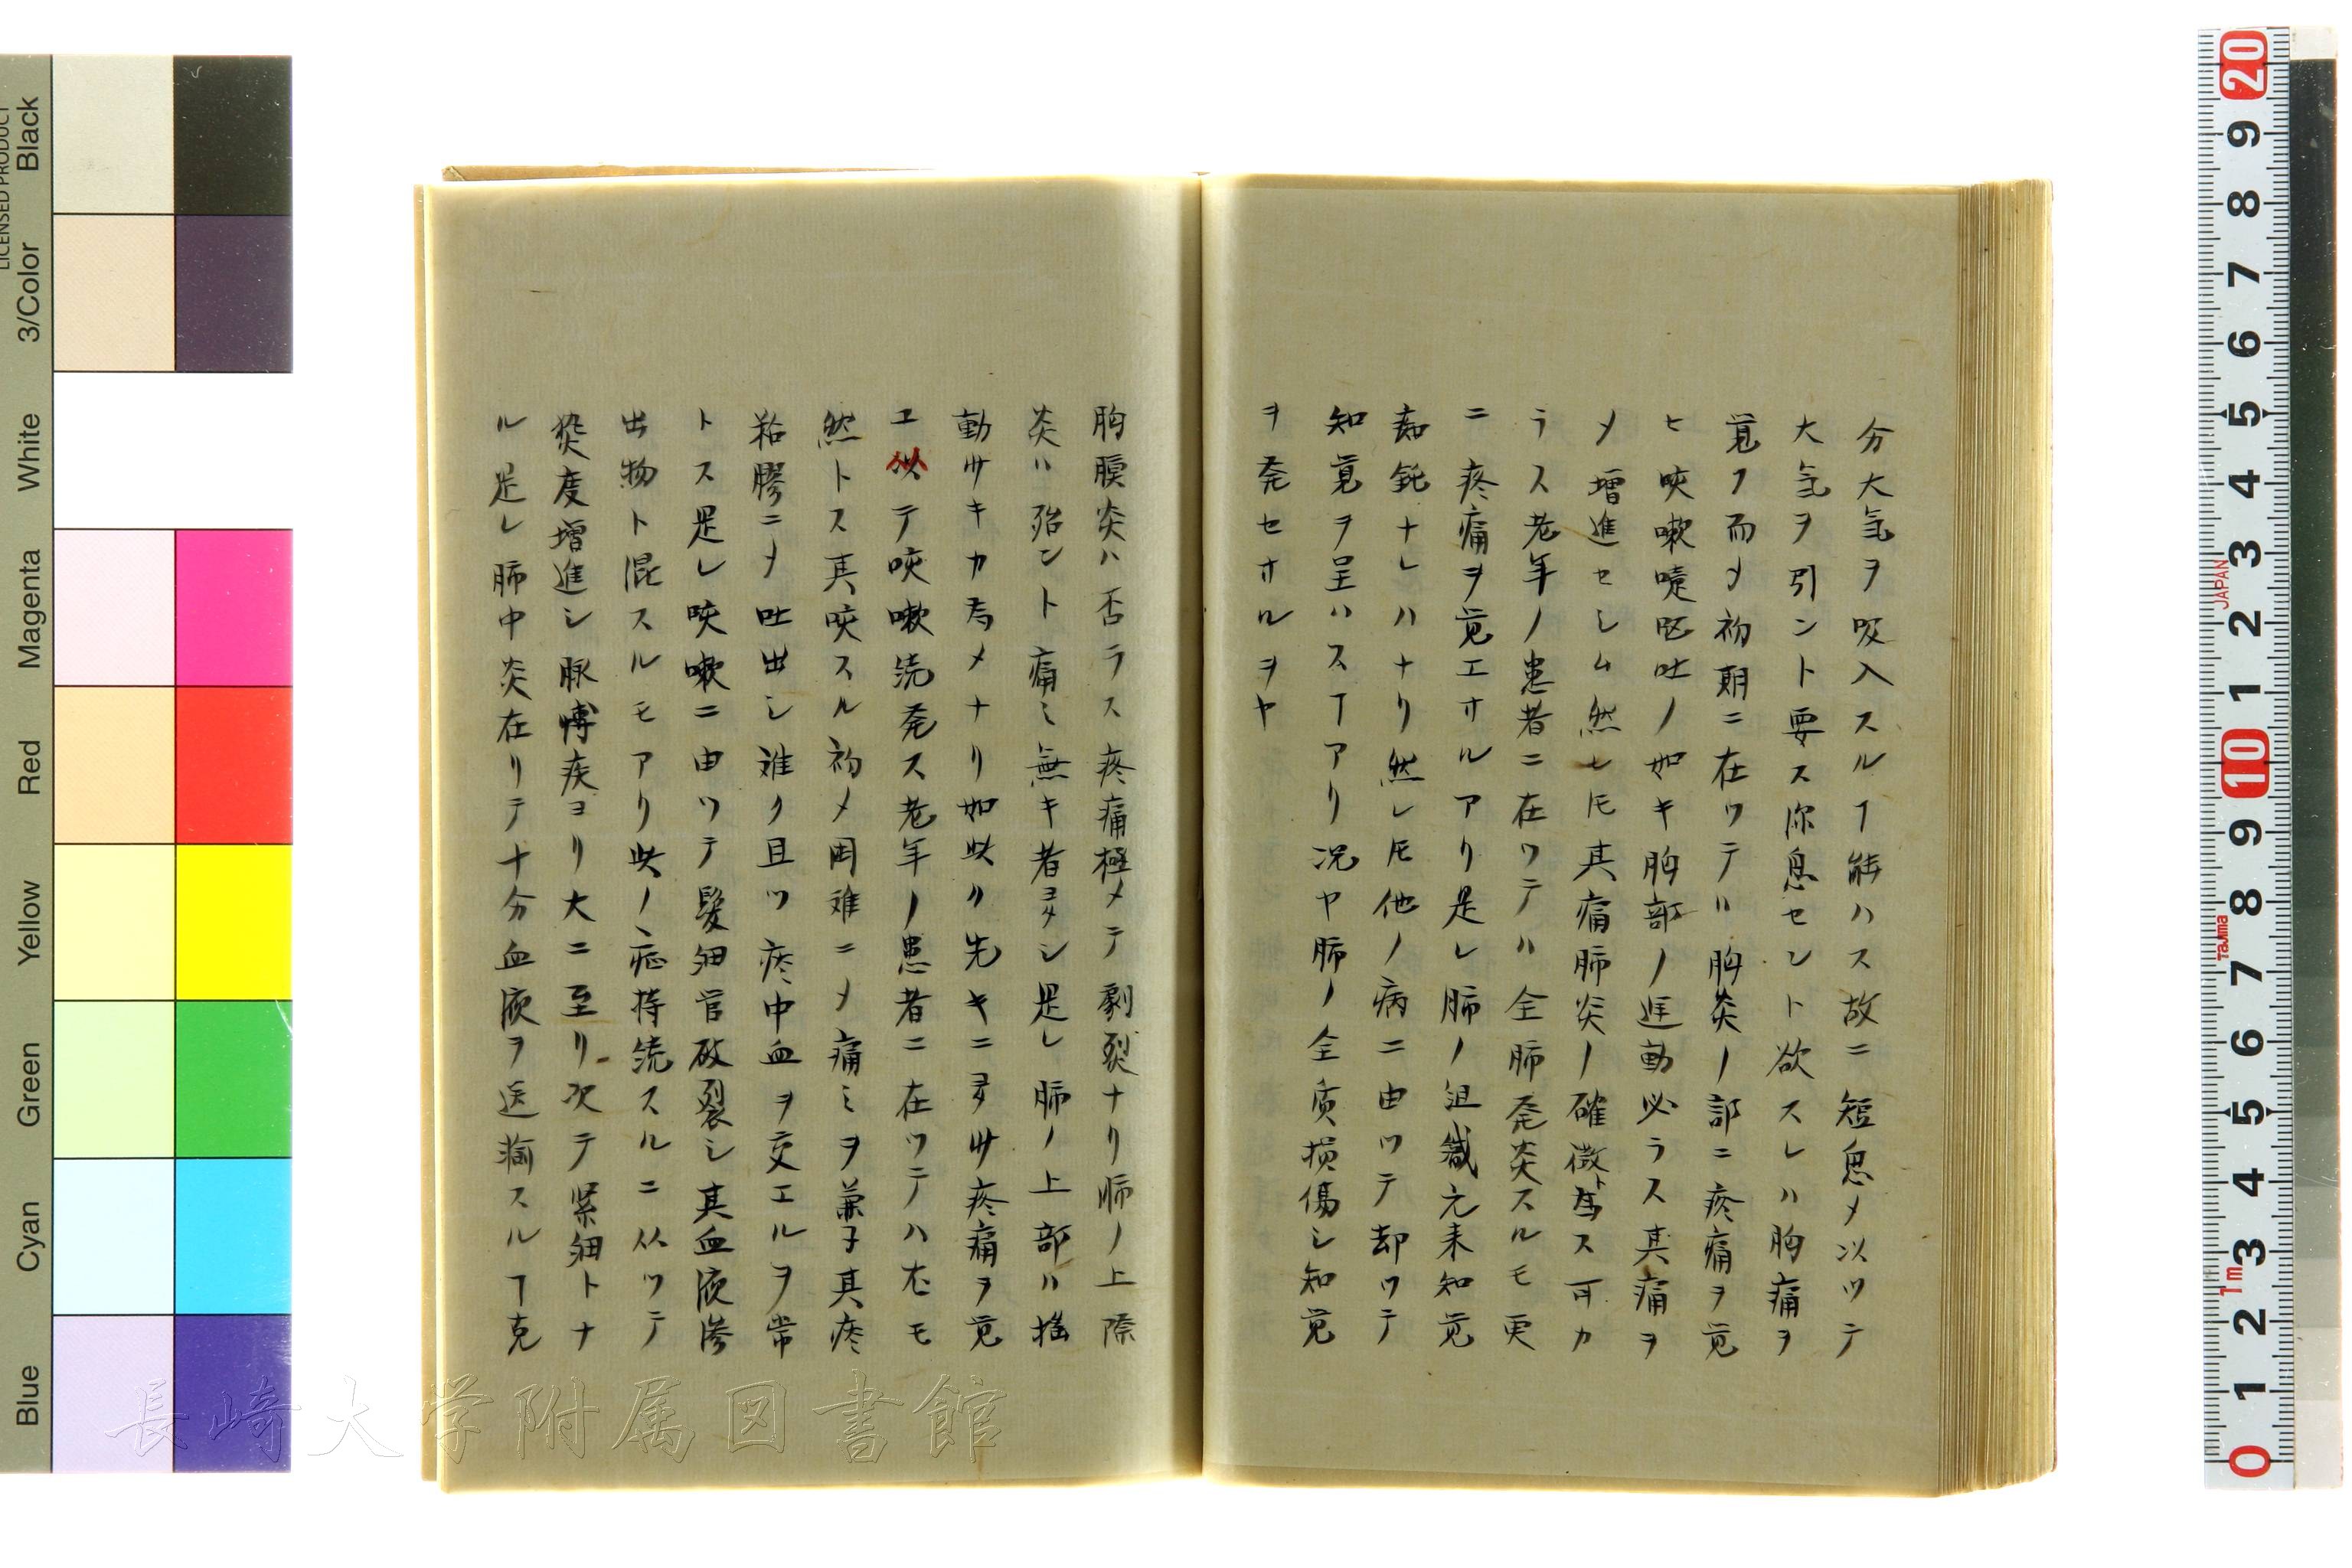 分大気ヲ吸入スルヿ能ハス故ニ短息メ以ツテ
大気ヲ引ント要ス深息セント欲スレハ胸痛ヲ
覚フ而メ初期ニ在ツテハ胸炎ノ部ニ疼痛ヲ覚
ヒ咳嗽嚏嘔吐ノ如キ胸部ノ進動必ラス其痛ヲ
メ増進セシム然レ𪜈其痛肺炎ノ確徴ト為ス可カ
ラス老年ノ患者ニ在ツテハ全肺発炎スルモ更
ニ疼痛ヲ覚エサルアリ是レ肺ノ組織元来知覚
痴鈍ナレハナリ然レ𪜈他ノ病ニ由ツテ却ツテ
知覚ヲ呈ハスヿアリ況ヤ肺ノ全質損傷シ知覚
ヲ発セサルヲヤ
胸膜炎ハ否ラス疼痛極メテ劇裂ナリ肺ノ上際
炎ハ殆ント痛ミ無キ者多シ是レ肺ノ上部ハ揺
動サキカ為メナリ如此ク先キニ多少疼痛ヲ覚
ヱ以テ咳嗽続発ス老年ノ患者ニ在ツテハ尤モ
然トス其咳スル初メ困難ニメ痛ミヲ兼子其痰
粘膠ニメ吐出シ難ク且ツ痰中血ヲ交エルヲ常
トス是レ咳嗽ニ由ツテ髪細官破裂シ其血液滲
出物ト混スルモアリ此ノ症持続スルニ从ツテ
焮度増進シ脈愽疾ヨリ大ニ至リ次テ緊細トナ
ル是レ肺中炎在リテ十分血液ヲ送瀉スルヿ克
長崎大学附属図書館
LICENSED PRODUCT
Black
3/Color
White
Magenta
Red
Yellow
Green
Cyan
Blue
20
9
8
7
6
5
4
3
JAPAN
2
1
10
9
8
Tajima
7
6
5
4
3
1m
2
1
0